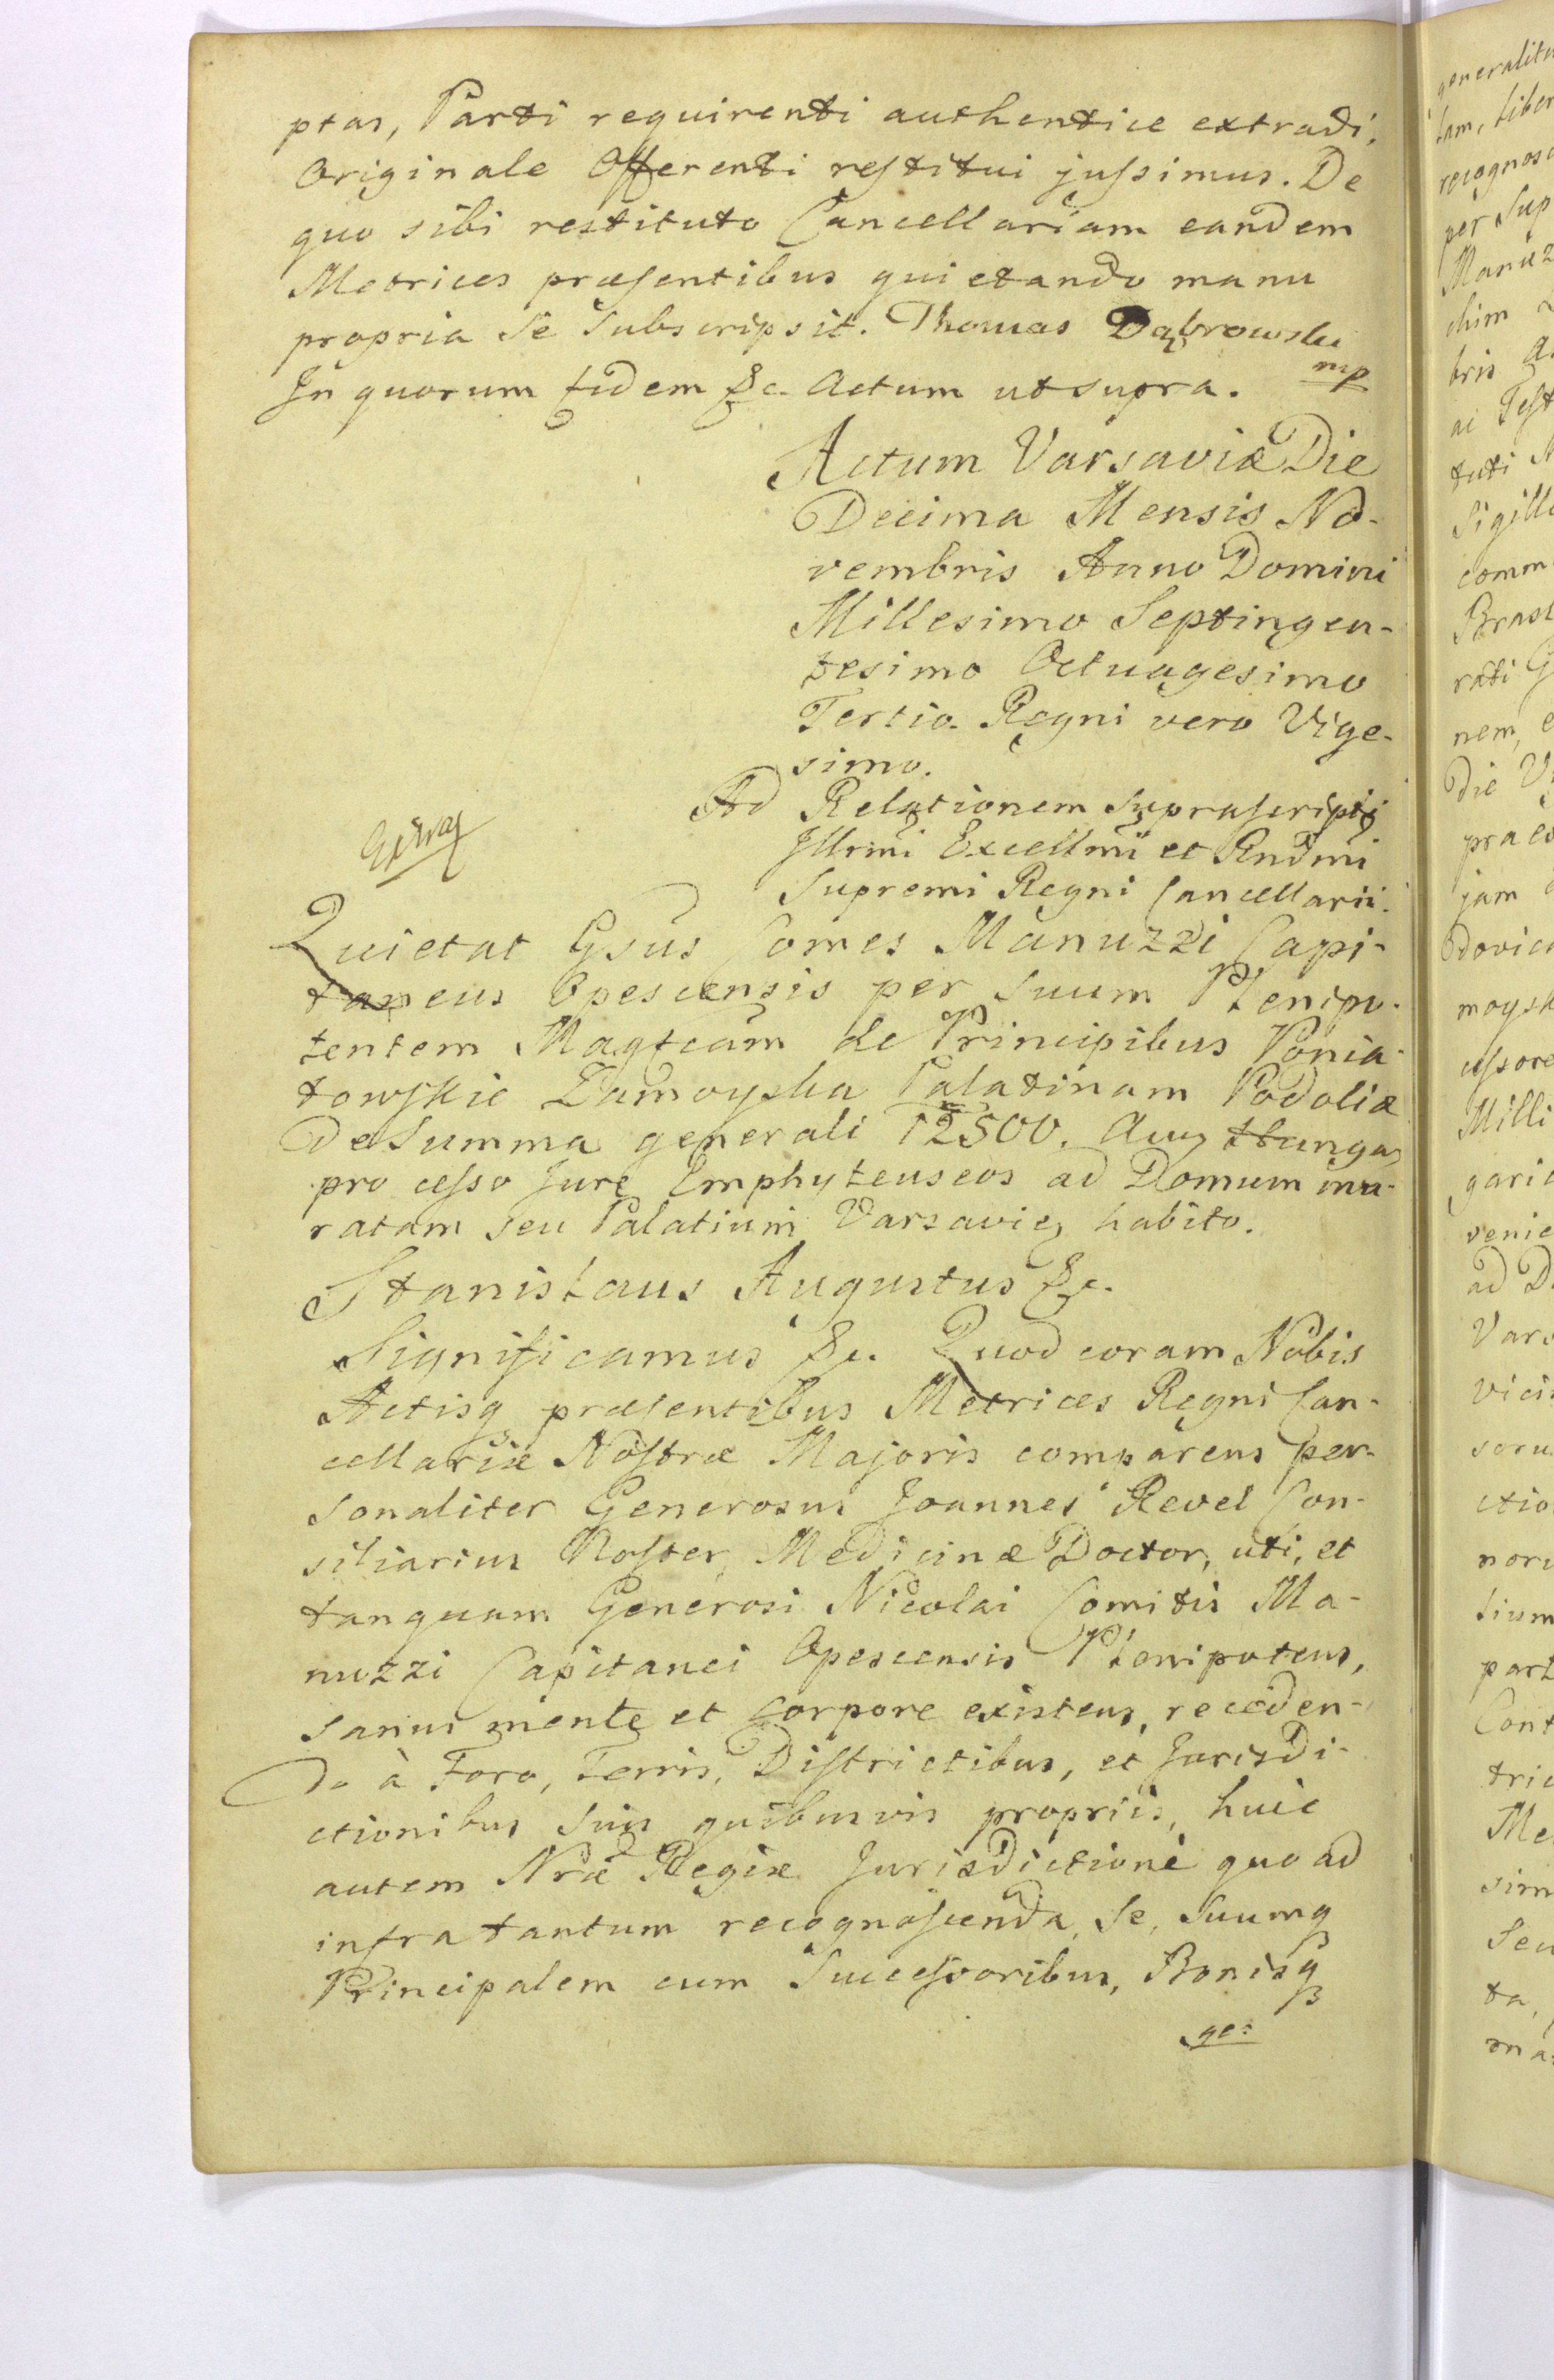 ptas, Parti requirenti authentice extradi,
Originale Offerenti restitui jussimus. De
quo sibi restituto Cancellariam eandem
Metrices præsentibus quietando manu
propria se subscripsit. Thomas Dąbrowski
mp
In quorum fidem &c. Actum ut supra.
Actum Varsaviæ Die
Decima Mensis No-
vembris Anno Domini
Millesimo Septingen-
tesimo Octuagesimo
Tertio. Regni vero Vige-
simo.
Ad Relationem suprascripti
Illrmi Excellmi et Rndmi
Supremi Regni Cancellarii.
Quietat Gsus Comes Manuzzi Capi-
taneus Opescensis per suum Plenipo-
tentem Magfcam de Principibus Ponia-
towskie Zamoyska Palatinam Podoliæ
De Summa generali 12500. Aur Hungar
pro cesso Jure Emphyteuseos ad Domum mu-
ratam seu Palatium Varsavię habito.
Stanislaus Augustus &c.
Significamus &c. Quod coram Nobis
Actisq præsentibus Metrices Regni Can-
cellariæ Nostræ Majoris comparens per-
sonaliter Generosus Joannes Revel Con-
siliarius Noster, Medicinæ Doctor, uti, et
tanquam Generosi Nicolai Comitis Ma-
nuzzi Capitanei Opescensis Plenipotens,
sanus mente et corpore existens, receden-
do à Foro, Terris, Districtibus, et Jurisdi-
ctionibus suis quibusvis propriis, huic
autem Nræ Regiæ Jurisdictioni quo ad
infra tantum recognoscenda, se, suumq
Principalem cum Successoribus, Bonisq
ge:
generalit
tam, liber
recognos
per Sup
Manuz
chim
bris
ac Test
tuti
Sigill
comm
Brasl
rati G
nem, e
Die V
præ
jam
Dovic
moysk
cessore
Milli
gari
venie
ad D
Vars
vici
soru
ctio
nor
tium
part
Cont
tric
Me
sim
seu
ta,